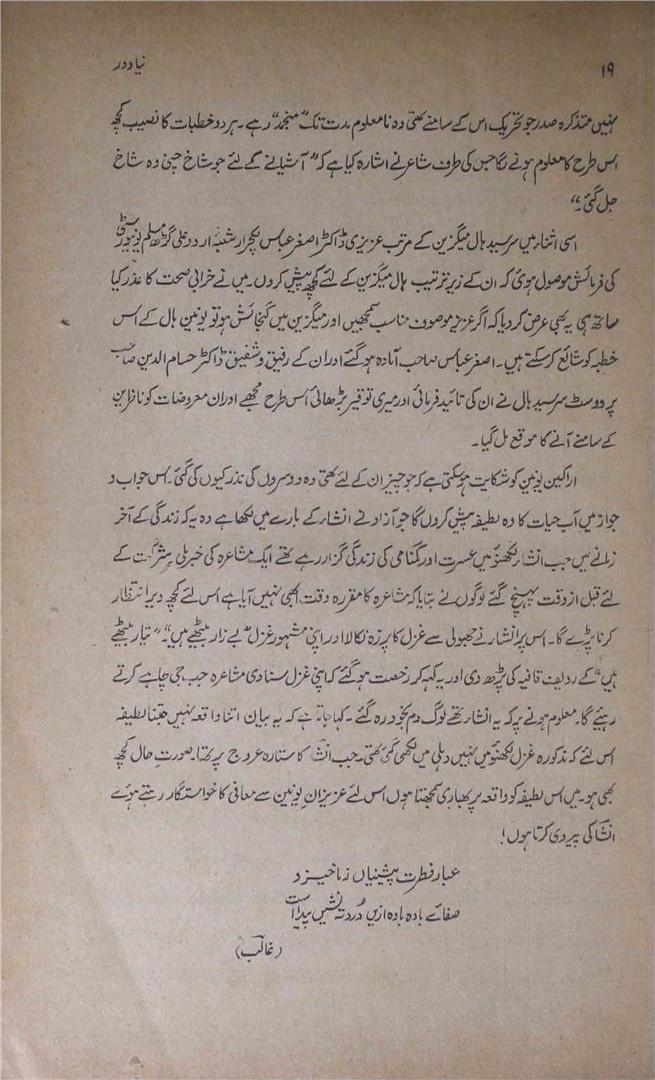 ۱۹
نیا دور
نہیں متذکرہ صدر جو تحریک اس کے سامنے تھی وہ نامعلوم مدت تک "منجمد" رہے۔ ہر دو خطبات کا نصیب کچھ
اس طرح کا معلوم ہونے لگا جس کی طرف شاعر نے اشارہ کیا ہے کہ "آشیانے کے لئے جو شاخ چنی وہ شاخ
جل گئی۔"
اسی اثناء میں سرسید ہال میگزین کے مرتب عزیزی ڈاکٹر اصغر عباس لکچرار شعبہ اردو علی گڑھ مسلم یونیورسٹی
کی فرمائش موصول ہوئی کہ ان کے زیر ترتیب ہال میگزین کے لئے کچھ پیش کروں۔ میں نے خرابی صحت کا عذر کیا
ساتھ ہی یہ بھی عرض کر دیا کہ اگر عزیز موصوف مناسب سمجھیں اور میگزین میں گنجائش ہو تو یونین ہال کے اس
خطبہ کو شائع کر سکتے ہیں۔ اصغر عباس صاحب آمادہ ہو گئے اور ان کے رفیق و شفیق ڈاکٹر حسام الدین صاحب
پرووسٹ سرسید ہال نے ان کی تائید فرمائی اور میری توقیر بڑھائی اس طرح مجھے اور ان معروضات کو ناظرین
کے سامنے آنے کا موقع مل گیا۔
اراکین یونین کو شکایت ہو سکتی ہے کہ جو چیز ان کے لئے تھی وہ دوسروں کی نذر کیوں کی گئی۔ اس جواب و
جواز میں آب حیات کا وہ لطیفہ پیش کروں گا جو آزاد نے انشاء کے بارے میں لکھا ہے وہ یہ کہ زندگی کے آخر
زمانے میں جب انشاء لکھنؤ میں عسرت اور گمنامی کی زندگی گزار رہے تھے ایک مشاعرہ کی خبر ملی شرکت کے
لئے قبل از وقت پہنچ گئے لوگوں نے بتایا کہ مشاعرہ کا مقررہ وقت ابھی نہیں آیا ہے اس لئے کچھ دیر انتظار
کرنا پڑے گا۔ اس پر انشاء نے جھولی سے غزل کا پرزہ نکالا اور اپنی مشہور غزل "بے زار بیٹھے ہیں"۔ "تیار بیٹھے
ہیں" کے ردیف قافیہ کی پڑھ دی اور یہ کہہ کر رخصت ہو گئے کہ اپنی غزل سنا دی مشاعرہ جب جی چاہے کرتے
رہئے گا۔ معلوم ہونے پر کہ یہ انشاء تھے لوگ دم بخود رہ گئے۔ کہا جاتا ہے کہ یہ بیان اتنا واقعہ نہیں جتنا لطیفہ
اس لئے کہ مذکورہ غزل لکھنؤ میں نہیں دہلی میں لکھی گئی تھی۔ جب انشا کا ستارہ عروج پر تھا۔ صورت حال کچھ
بھی ہو۔ میں اس لطیفہ کو واقعہ پر بھاری سمجھتا ہوں اس لئے عزیزان یونین سے معافی کا خواستگار رہتے ہوئے
انشا کی پیروی کرتا ہوں!
عیار فطرت پیشینیاں ز ما خیزد
صفائے بادہ ازیں درد تہ نشیں پیدا است
(غالب)